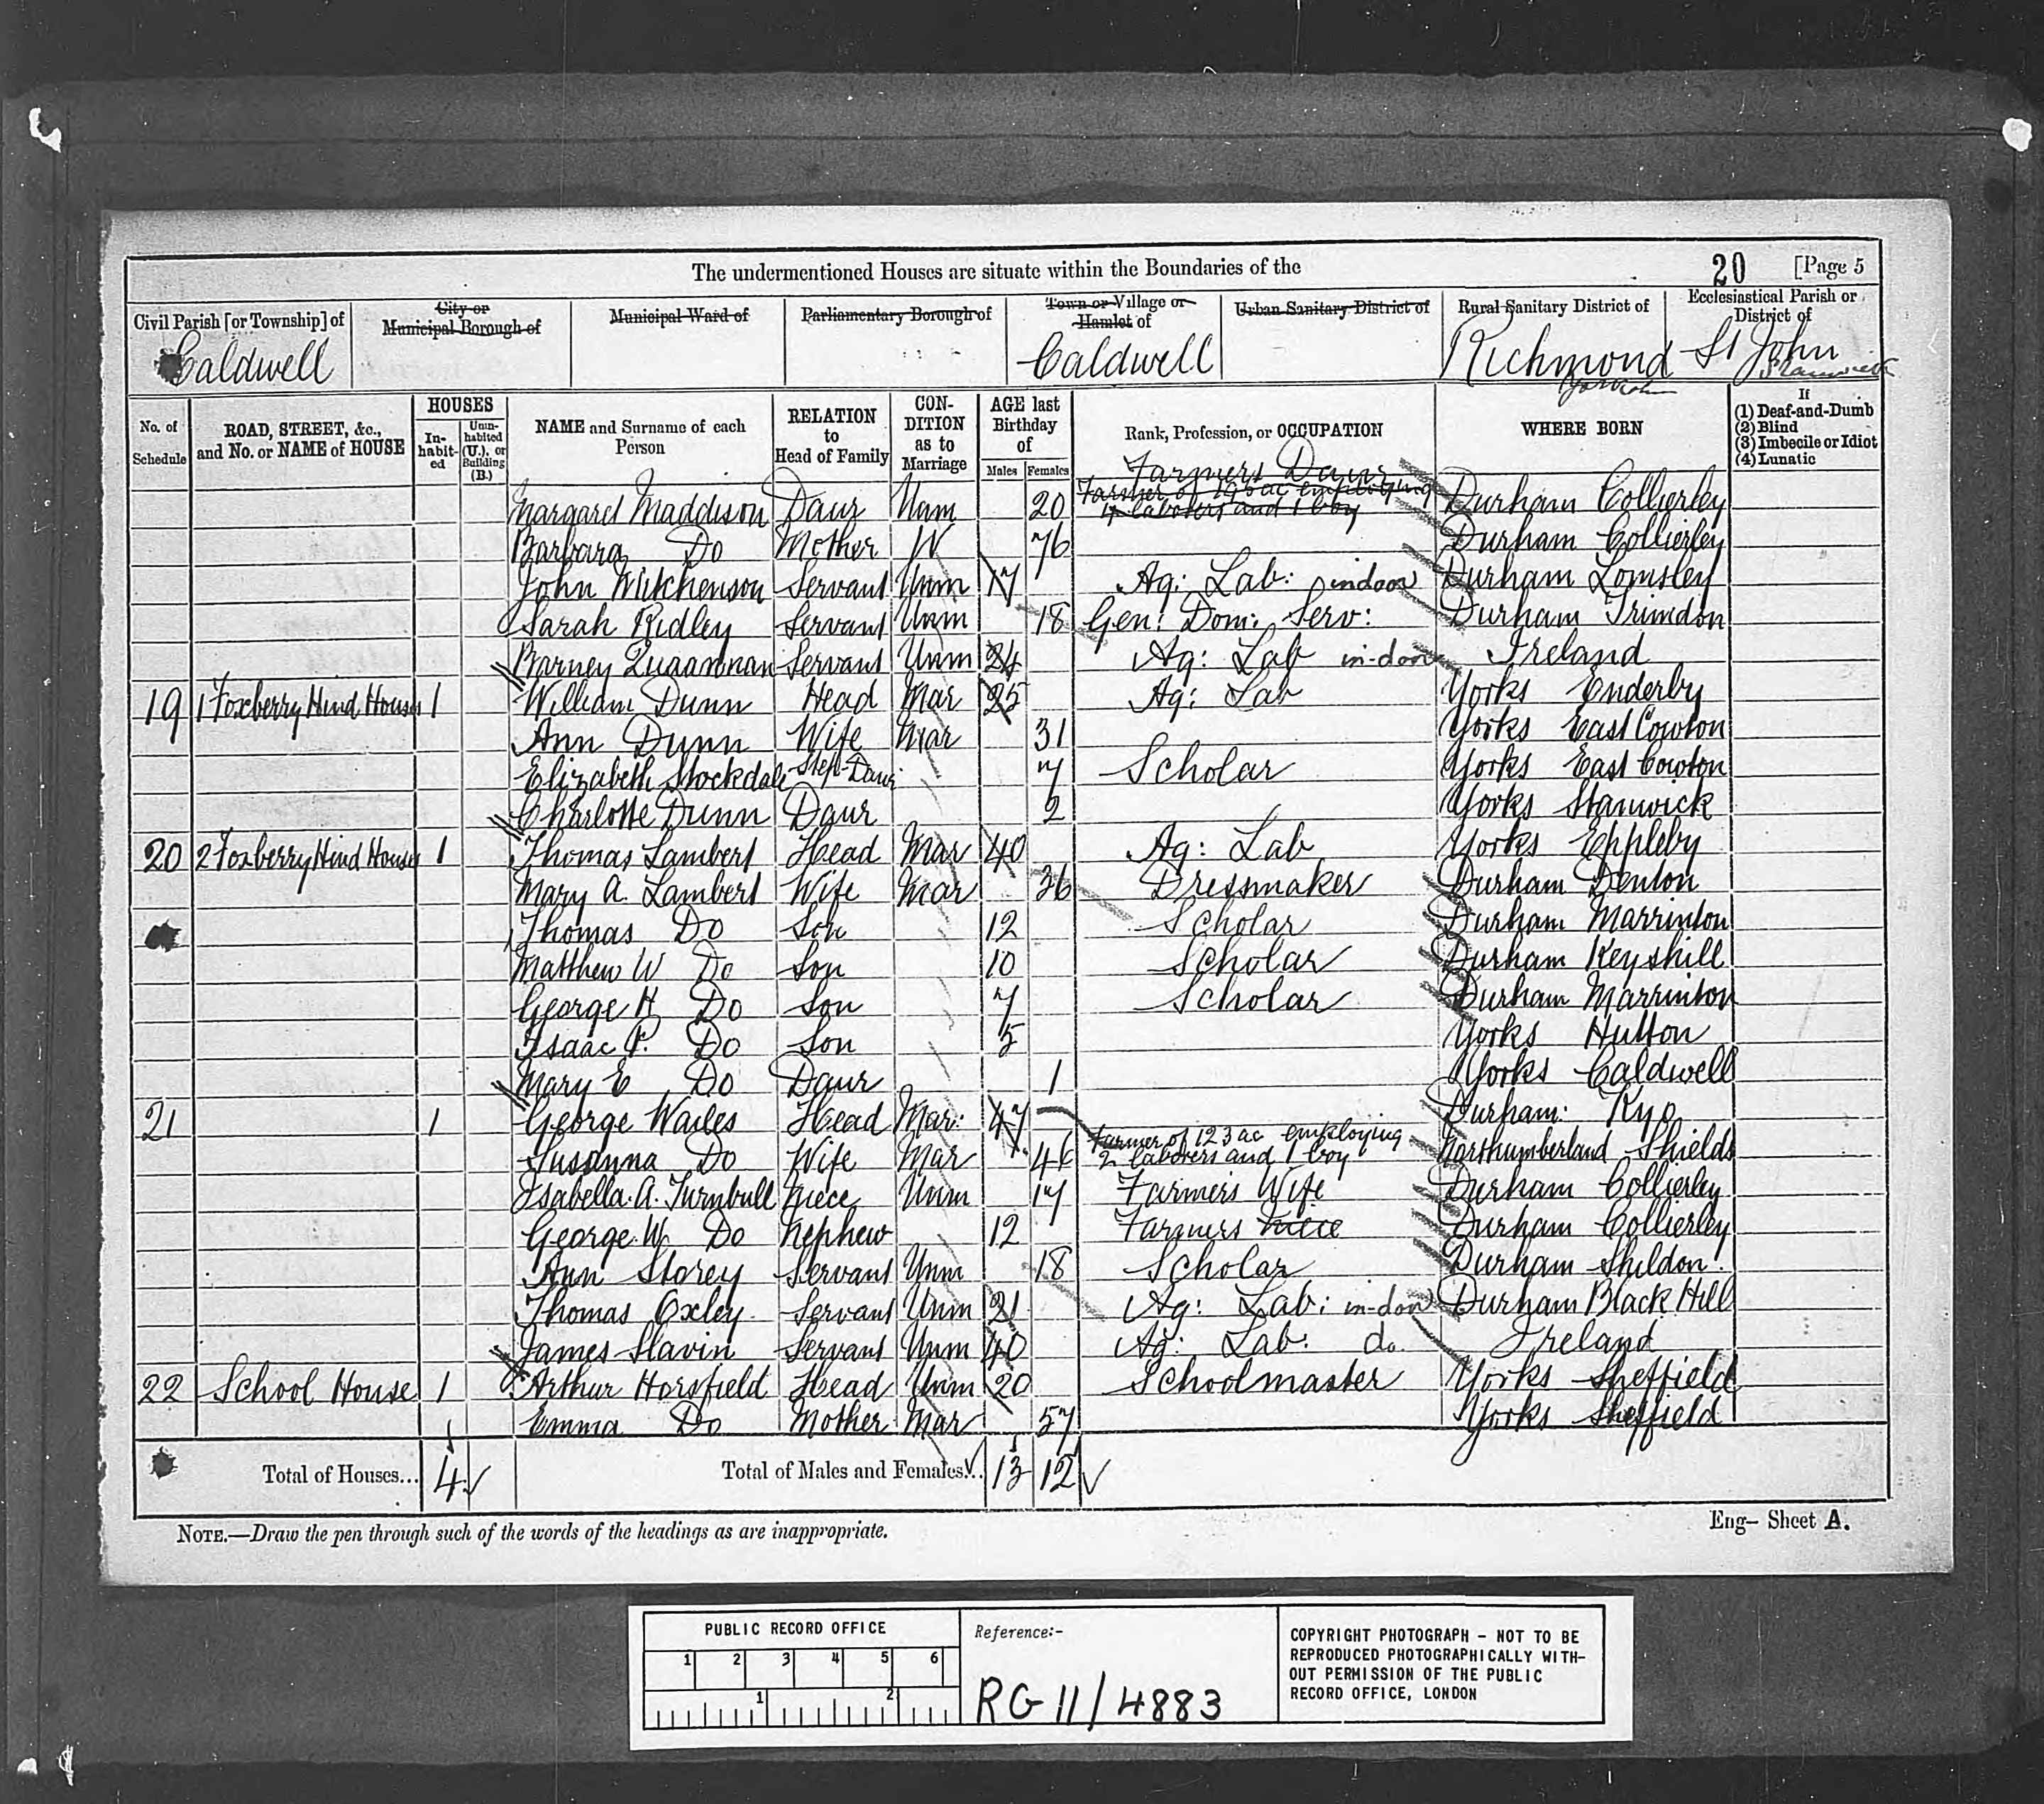 The undermentioned Houses are situate within the Boundaries of the
20 [Page 5
Civil Parish [or Township] of
City or Municipal Borough of
Municipal Ward of
Parliamentary Borough of
Town or Village or Hamlet of
Urban Sanitary District of
Rural Sanitary District of
Ecclesiastical Parish or District of
Caldwell Caldwell Richmond St John
Stanwick
No. of Schedule
ROAD, STREET, &c., and No. or NAME of HOUSE
HOUSES
In-habit-ed
Unin-habited (U.), or Building (B.)
NAME and Surname of each Person
RELATION to Head of Family
CON-DITION as to Marriage
AGE last Birthday of
Males Females
Rank, Profession, or OCCUPATION
WHERE BORN
If
(1) Deaf-and-Dumb
(2) Blind
(3) Imbecile or Idiot
(4) Lunatic
Farmers Daur
Farmer of 195 ac employing
4 laborers and 1 boy
Margaret Maddison Daur Unm 20 Durham Collierley
Barbara Do Mother W 76 Durham Collierley
John Mitchenson Servant Unm 17 Ag: Lab: indoor Durham Lomsley
Sarah Ridley Servant Unm 18 Gen: Dom: Serv: Durham Trimdon
Barney Servant Unm 24 Ag: Lab in-door Ireland
19 1 Foxberry Hind House 1 William Dunn Head Mar 25 Ag: Lab Yorks Enderby
Ann Dunn Wife Mar 31 Yorks East Cowton
Elizabeth Stockdale Step-Daur 7 Scholar Yorks East Cowton
Charlotte Dunn Daur 2 Yorks Stanwick
20 2 Foxberry Hind House 1 Thomas Lambert Head Mar 40 Ag: Lab Yorks Eppleby
Mary A. Lambert Wife Mar 36 Dressmaker Durham Denton
Thomas Do Son 12 Scholar Durham Marrinton
Matthew W Do Son 10 Scholar Durham Keyshill
George H Do Son 7 Scholar Durham Marrinton
Isaac P. Do Son 5 Yorks Hutton
Mary E Do Daur 1 Yorks Caldwell
21 1 George Wailes Head Mar: 47 Durham: Kyo
Farmer of 123 ac employing
2 laborers and 1 boy
Susanna Do Wife Mar 46 Northumberland Shields
Isabella. A. Turnbull Niece Unm 17 Farmers Wife Durham Collierley
George. W. Do Nephew 12 Farmers Niece Durham Collierley
Ann Storey Servant Unm 18 Scholar Durham Shildon.
Thomas Oxley Servant Unm 21 Ag: Lab: in-door Durham Black Hill
James Slavin Servant Unm 40 Ag: Lab: do. Ireland
22 School House 1 Arthur Horsfield Head Unm 20 Schoolmaster Yorks Sheffield
Emma Do Mother Mar 57 Yorks Sheffield
Total of Houses... 4 Total of Males and Females... 13 12
NOTE.—Draw the pen through such of the words of the headings as are inappropriate.
Eng- Sheet A.
PUBLIC RECORD OFFICE
1 2 3 4 5 6
1 2
Reference:-
RG 11/4883
COPYRIGHT PHOTOGRAPH - NOT TO BE
REPRODUCED PHOTOGRAPHICALLY WITH-
OUT PERMISSION OF THE PUBLIC
RECORD OFFICE, LONDON